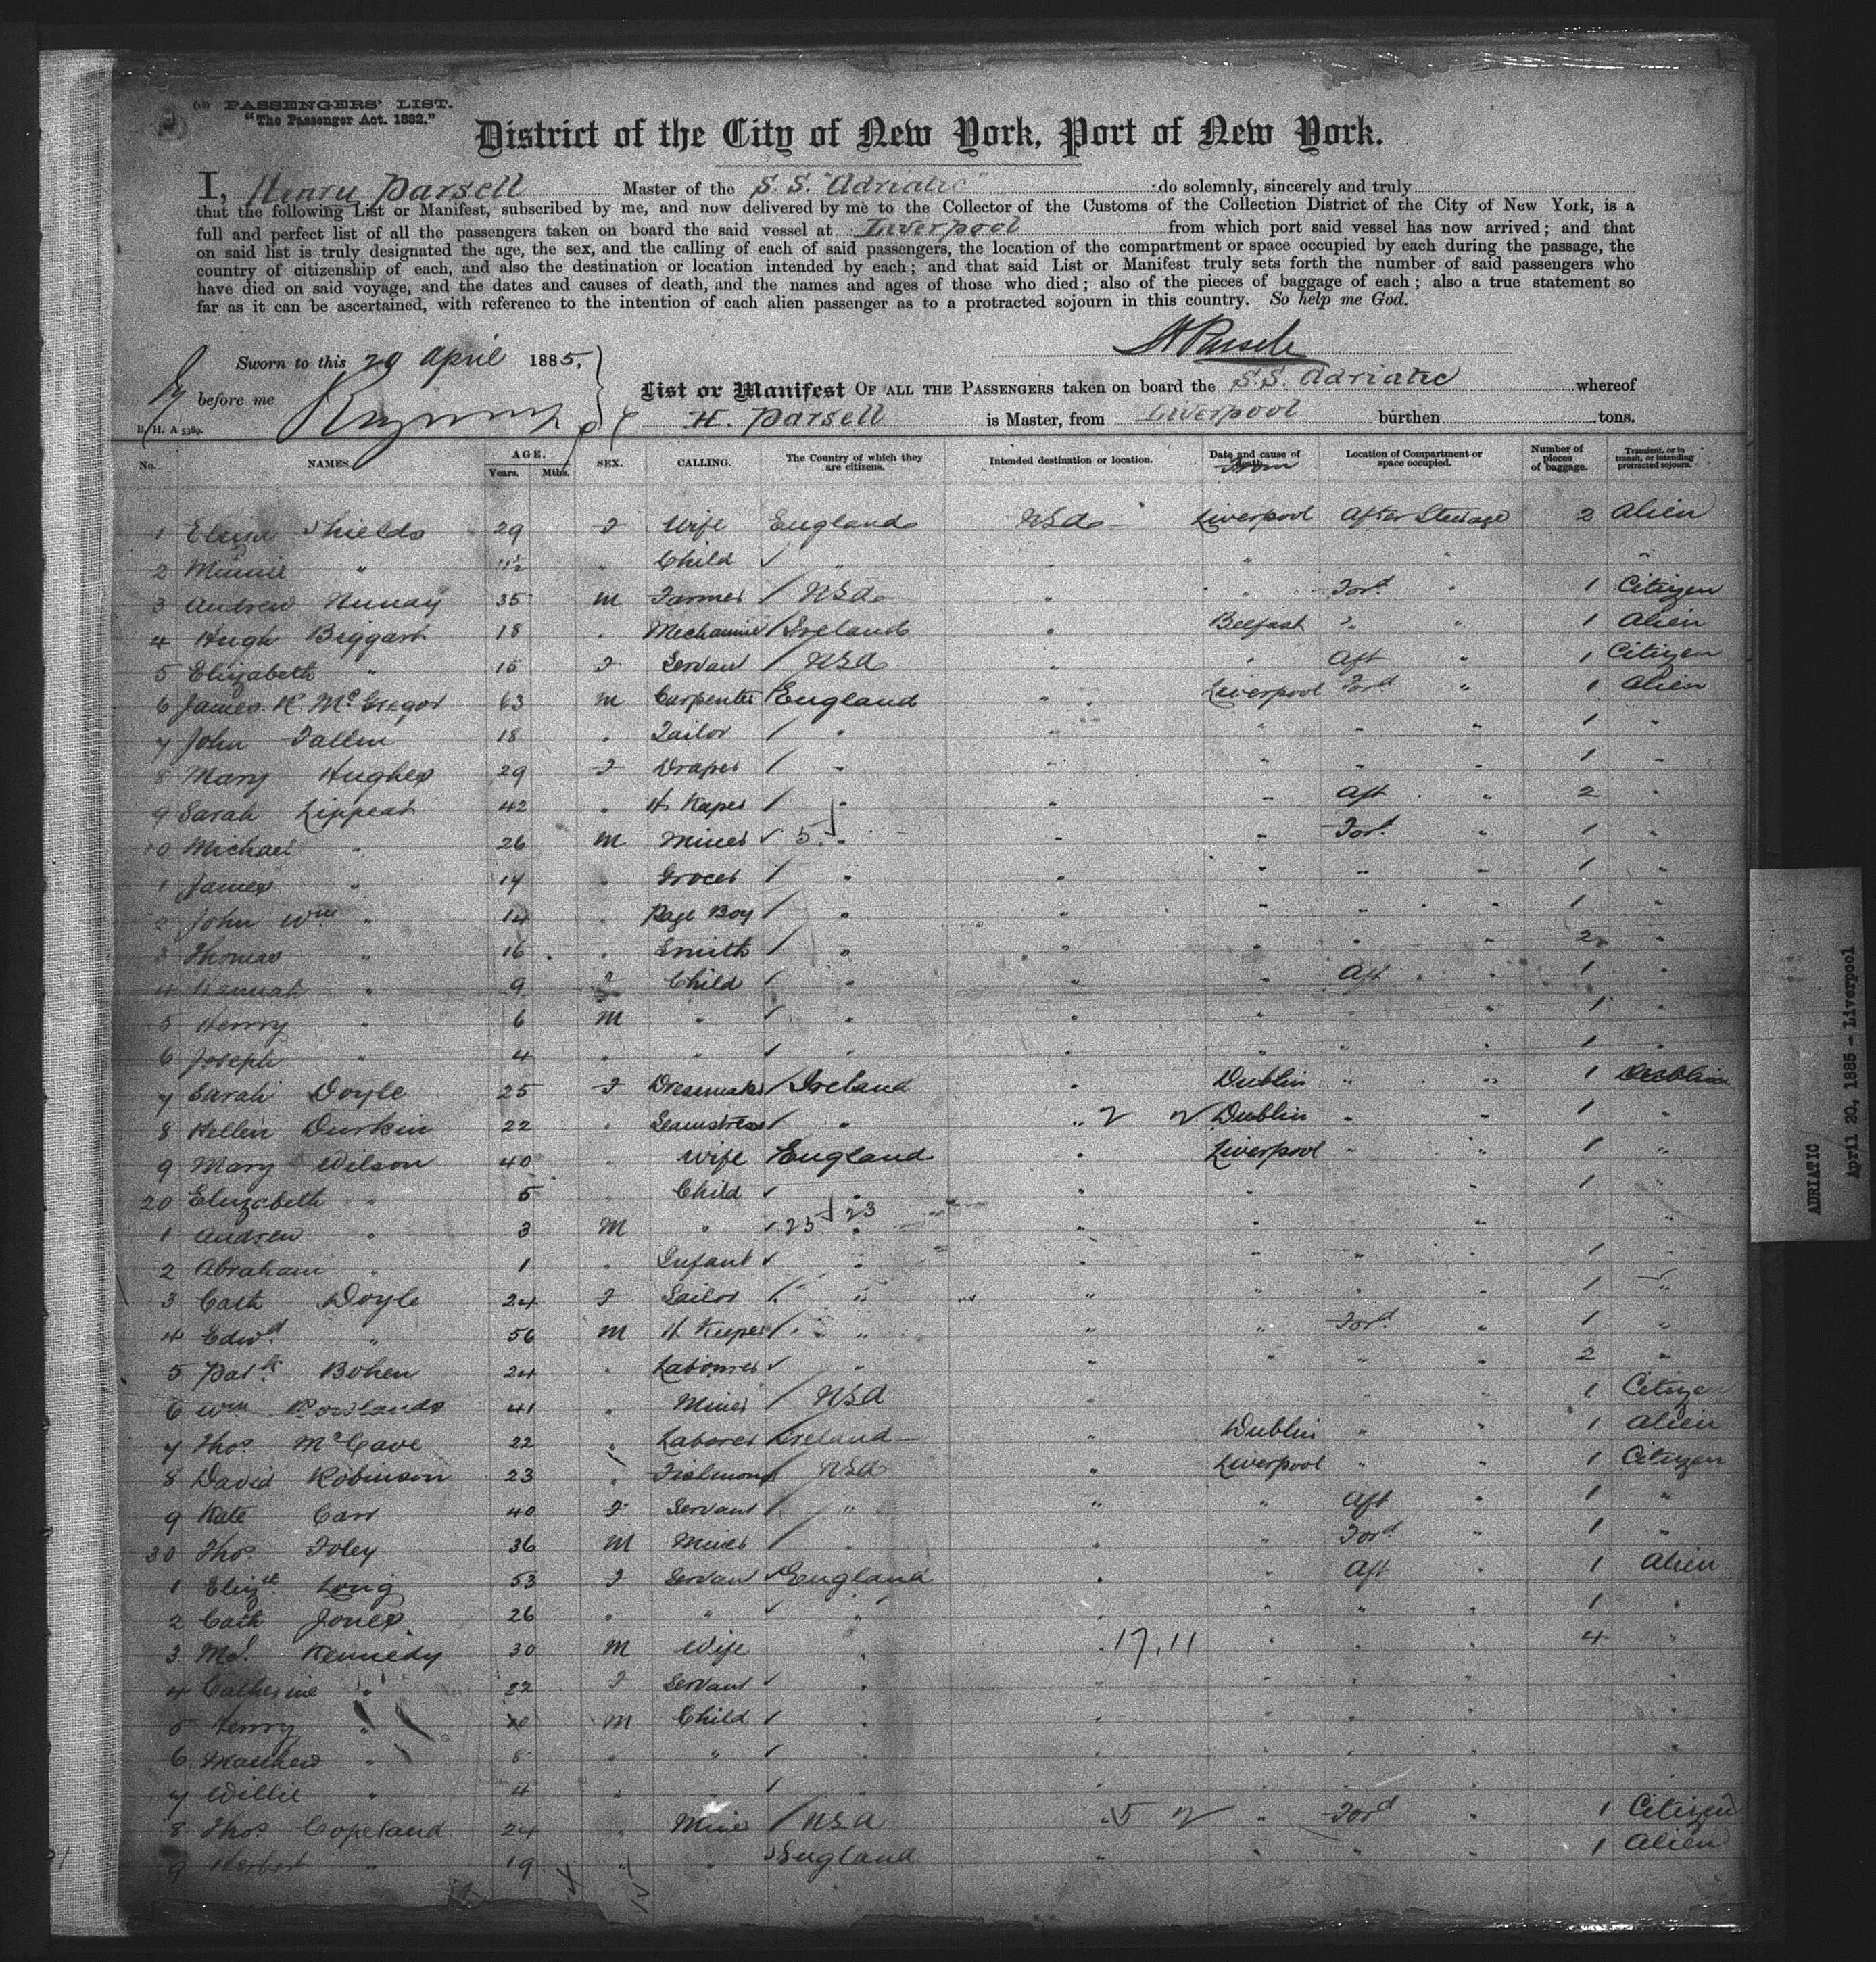 PASSENGERS' LIST.
"The Passenger Act. 1882."
District of the City of New York, Port of New York.
I, Henry Parsell Master of the S.S. "Adriatic" do solemnly, sincerely and truly
that the following List or Manifest, subscribed by me, and now delivered by me to the Collector of the Customs of the Collection District of the City of New York, is a
full and perfect list of all the passengers taken on board the said vessel at Liverpool from which port said vessel has now arrived; and that
on said list is truly designated the age, the sex, and the calling of each of said passengers, the location of the compartment or space occupied by each during the passage, the
country of citizenship of each, and also the destination or location intended by each; and that said List or Manifest truly sets forth the number of said passengers who
have died on said voyage, and the dates and causes of death, and the names and ages of those who died; also of the pieces of baggage of each; also a true statement so
far as it can be ascertained, with reference to the intention of each alien passenger as to a protracted sojourn in this country. So help me God.
H Parsell
Sworn to this 20 April 1885,
before me
List or Manifest OF ALL THE PASSENGERS taken on board the S.S. Adriatic whereof
B. H. A 5389. H. Parsell is Master, from Liverpool burthen tons.
No. NAMES. AGE. Years. Mths. SEX. CALLING. The Country of which they are citizens. Intended destination or location. Date and cause of Location of Compartment or space occupied. Number of pieces of baggage. Transient, or in transit, or intending protracted sojourn.
1 Eliza Shields 29 F Wife England USA Liverpool After Steerage 2 Alien
2 Minnie " " Child ✓ " " " " "
3 Andrew 35 M Farmer / USA " " Ford " 1 Citizen
4 Hugh Biggart 18 " Mechanic / Ireland " Belfast " " 1 Alien
5 Elizabeth " 15 F Servan / USA " " Aft " 1 Citizen
6 James K. McGregor 63 M Carpenter England " Liverpool Ford " 1 Alien
7 John Fallin 18 " Tailor / " " " " " 1 "
8 Mary Hughes 29 F Draper / " " " " " 1 "
9 Sarah Lippeat 42 " H Kaper / " " " Aft " 2 "
10 Michael " 26 M Miner ✓ 5 " " " Ford " 1 "
1 James " 14 " Grocer / " " " " " 1 "
2 John Wm " 14 " Page Boy / " " " " " 1 "
3 Thomas " 16 " Smith / " " " " " 2 "
4 Hannah " 9 F Child / " " " Aft " 1 "
5 Henry " 6 M " ✓ " " " " " 1 "
6 Joseph " 4 " " ✓ " " " " " 1 "
7 Sarah Doyle 25 F Dressmaker / Ireland " Dublin " " 1
8 Hellen Durkin 22 " Seamstress / " " 2 2 Dublin " " 1 "
9 Mary Wilson 40 " Wife England " Liverpool " " 1 "
20 Elizabeth " 5 " Child ✓ " " " " 1 "
1 Andrew " 3 M " ✓ 23 23 " " " "
2 Abraham " 1 " Infant ✓ " " " " " 1 "
3 Cath Doyle 24 F Tailor / " " " " " 1 "
4 Edwd " 56 M H Keeper / " " " Ford " 1 "
5 Patk Bohen 24 " Labourer ✓ " " " " " 2 "
6 Wm Rowlands 41 " Miner / USA " " " 1 Citizen
7 Thos McCave 22 " Laborer Ireland " Dublin " " 1 Alien
8 David Robinson 23 " Fishmong / USA " Liverpool " " 1 Citizen
9 Kate Carr 40 F Servant / " " " Aft " 1 "
30 Thos Foley 36 M Miner / " " " Ford " 1 "
1 Elizth Long 53 F Servan ✓ England " " Aft " 1 Alien
2 Cath Jones 26 " " ✓ " " " " " 1 "
3 Ml. Kennedy 30 M Wife " 17,11 " " " 4 "
4 Catherine " 22 F Servant ✓ " " " " "
5 Henry " M Child ✓ " " " " "
6 Matthew " 8 " " ✓ " " " " "
7 Willie " 4 " ✓ " " " " "
8 Thos Copeland 24 " Miner / USA 5 2 " Ford " 1 Citizen
9 Herbert " 19 " " England " " " " 1 Alien
ADRIATIC
April 20, 1885 - Liverpool